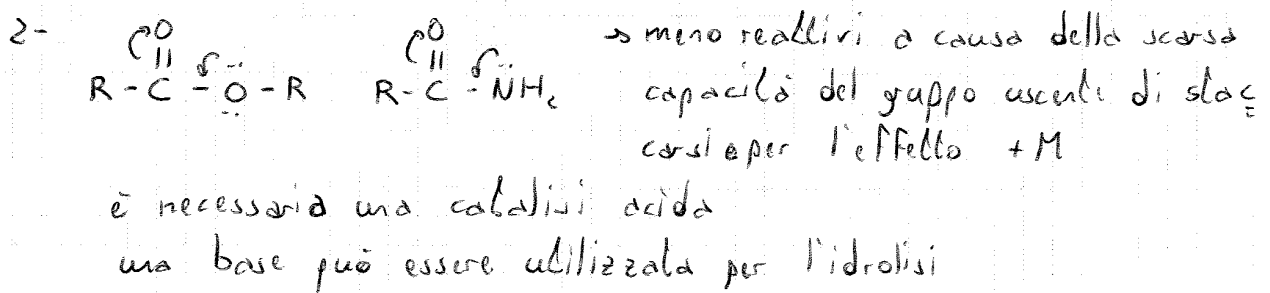 2- O O → meno reattivi a causa della scarsa
R - C - O - R R - C - NH₂ capacità del gruppo uscente di stac
carsi e per l'effetto + M
è necessaria una catalisi acida
una base può essere utilizzata per l'idrolisi